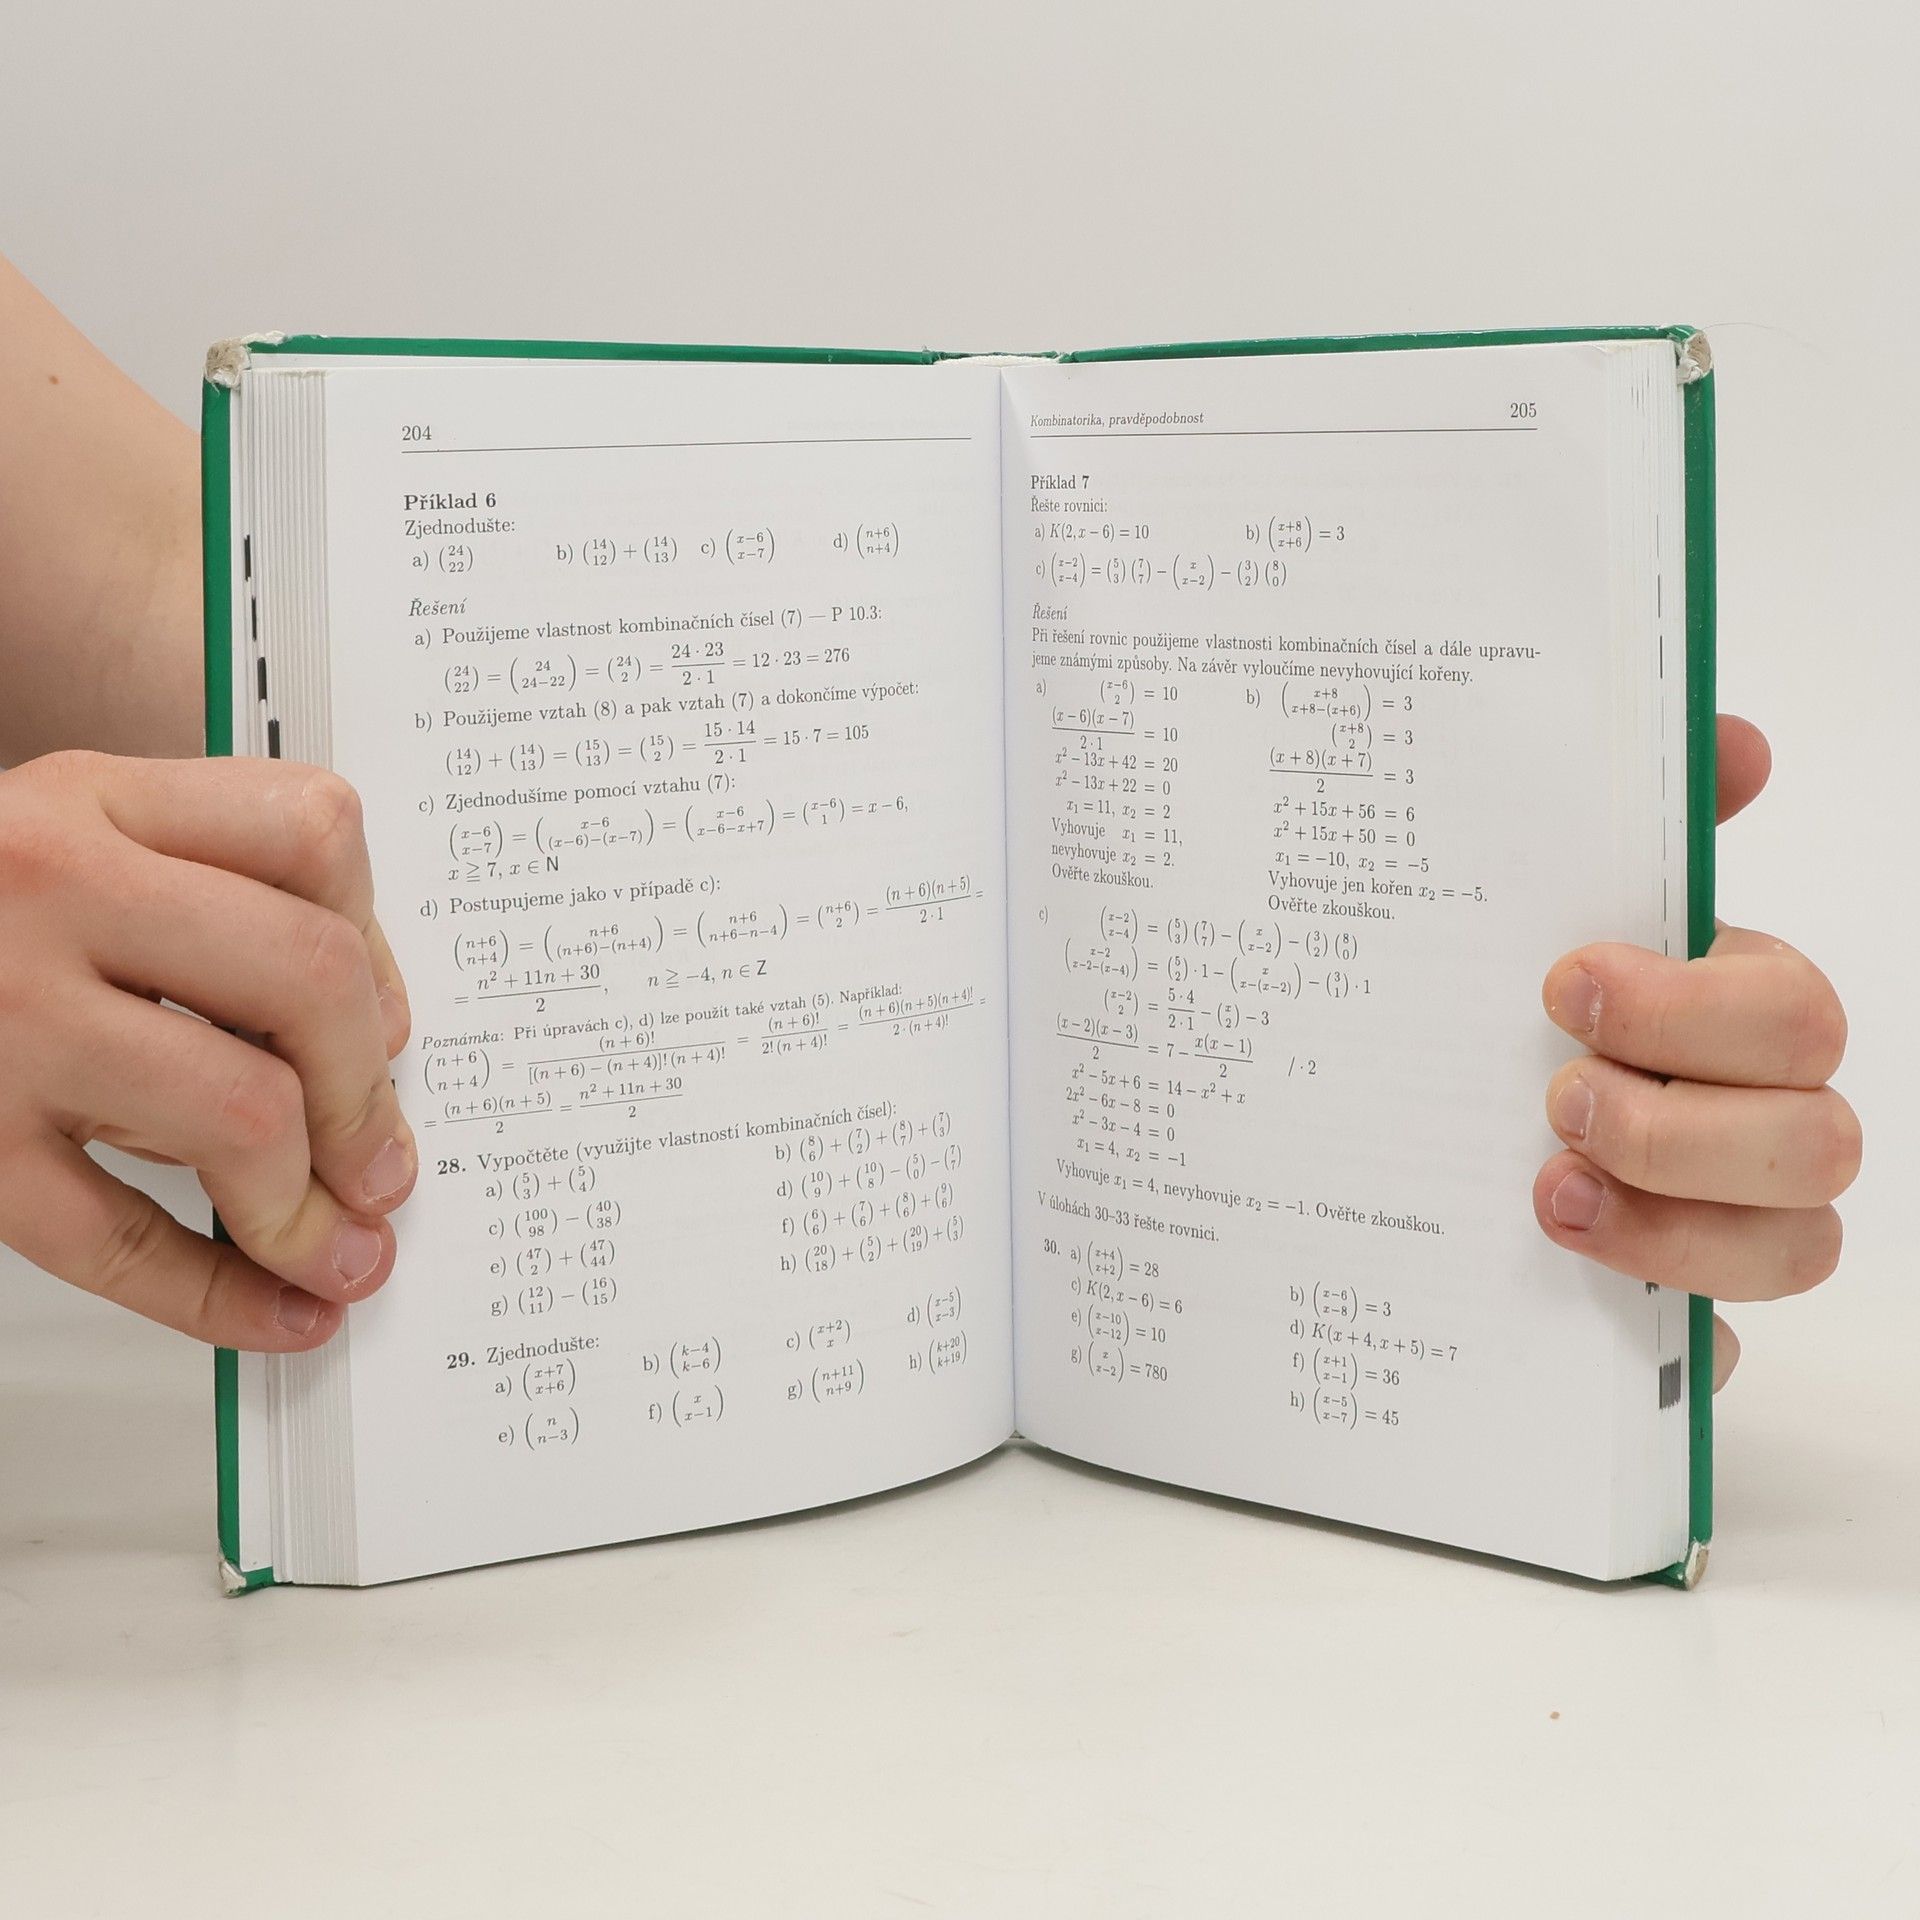 204
Příklad 6
Zjednodušte:
a) (24 22) b) (14 12) + (14 13) c) (x−6 x−7) d) (n+6 n+4)
Řešení
a) Použijeme vlastnost kombinačních čísel (7) — P 10.3:
(24 22) = (24 24−22) = (24 2) = 24 · 23 / 2 · 1 = 12 · 23 = 276
b) Použijeme vztah (8) a pak vztah (7) a dokončíme výpočet:
(14 12) + (14 13) = (15 13) = (15 2) = 15 · 14 / 2 · 1 = 15 · 7 = 105
c) Zjednodušíme pomocí vztahu (7):
(x−6 x−7) = (x−6 (x−6)−(x−7)) = (x−6 x−6−x+7) = (x−6 1) = x − 6,
x ≧ 7, x ∈ N
d) Postupujeme jako v případě c):
(n+6 n+4) = (n+6 (n+6)−(n+4)) = (n+6 n+6−n−4) = (n+6 2) = (n + 6)(n + 5) / 2 · 1 =
= n² + 11n + 30 / 2, n ≧ −4, n ∈ Z
Poznámka: Při úpravách c), d) lze použít také vztah (5). Například:
(n + 6 n + 4) = (n + 6)! / [(n + 6) − (n + 4)]! (n + 4)! = (n + 6)! / 2! (n + 4)! = (n + 6)(n + 5)(n + 4)! / 2 · (n + 4)! =
= (n + 6)(n + 5) / 2 = n² + 11n + 30 / 2
28. Vypočtěte (využijte vlastností kombinačních čísel):
a) (5 3) + (5 4) b) (8 6) + (7 2) + (8 7) + (7 3)
c) (100 98) − (40 38) d) (10 9) + (10 8) − (5 0) − (7 7)
e) (47 2) + (47 44) f) (6 6) + (7 6) + (8 6) + (9 6)
g) (12 11) − (16 15) h) (20 18) + (5 2) + (20 19) + (5 3)
29. Zjednodušte:
a) (x+7 x+6) b) (k−4 k−6) c) (x+2 x) d) (x−5 x−3)
e) (n n−3) f) (x x−1) g) (n+11 n+9) h) (k+20 k+19)
Kombinatorika, pravděpodobnost 205
Příklad 7
Řešte rovnici:
a) K(2, x − 6) = 10 b) (x+8 x+6) = 3
c) (x−2 x−4) = (5 3) (7 7) − (x x−2) − (3 2) (8 0)
Řešení
Při řešení rovnic použijeme vlastnosti kombinačních čísel a dále upravu-
jeme známými způsoby. Na závěr vyloučíme nevyhovující kořeny.
a) (x−6 2) = 10
(x − 6)(x − 7) / 2 · 1 = 10
x² − 13x + 42 = 20
x² − 13x + 22 = 0
x₁ = 11, x₂ = 2
Vyhovuje x₁ = 11,
nevyhovuje x₂ = 2.
Ověřte zkouškou.
b) (x+8 x+8−(x+6)) = 3
(x+8 2) = 3
(x + 8)(x + 7) / 2 = 3
x² + 15x + 56 = 6
x² + 15x + 50 = 0
x₁ = −10, x₂ = −5
Vyhovuje jen kořen x₂ = −5.
Ověřte zkouškou.
c) (x−2 x−4) = (5 3) (7 7) − (x x−2) − (3 2) (8 0)
(x−2 x−2−(x−4)) = (5 2) · 1 − (x x−(x−2)) − (3 1) · 1
(x−2 2) = 5 · 4 / 2 · 1 − (x 2) − 3
(x − 2)(x − 3) / 2 = 7 − x(x − 1) / 2 / · 2
x² − 5x + 6 = 14 − x² + x
2x² − 6x − 8 = 0
x² − 3x − 4 = 0
x₁ = 4, x₂ = −1
Vyhovuje x₁ = 4, nevyhovuje x₂ = −1. Ověřte zkouškou.
V úlohách 30–33 řešte rovnici.
30. a) (x+4 x+2) = 28 b) (x−6 x−8) = 3
c) K(2, x − 6) = 6 d) K(x + 4, x + 5) = 7
e) (x−10 x−12) = 10 f) (x+1 x−1) = 36
g) (x x−2) = 780 h) (x−5 x−7) = 45